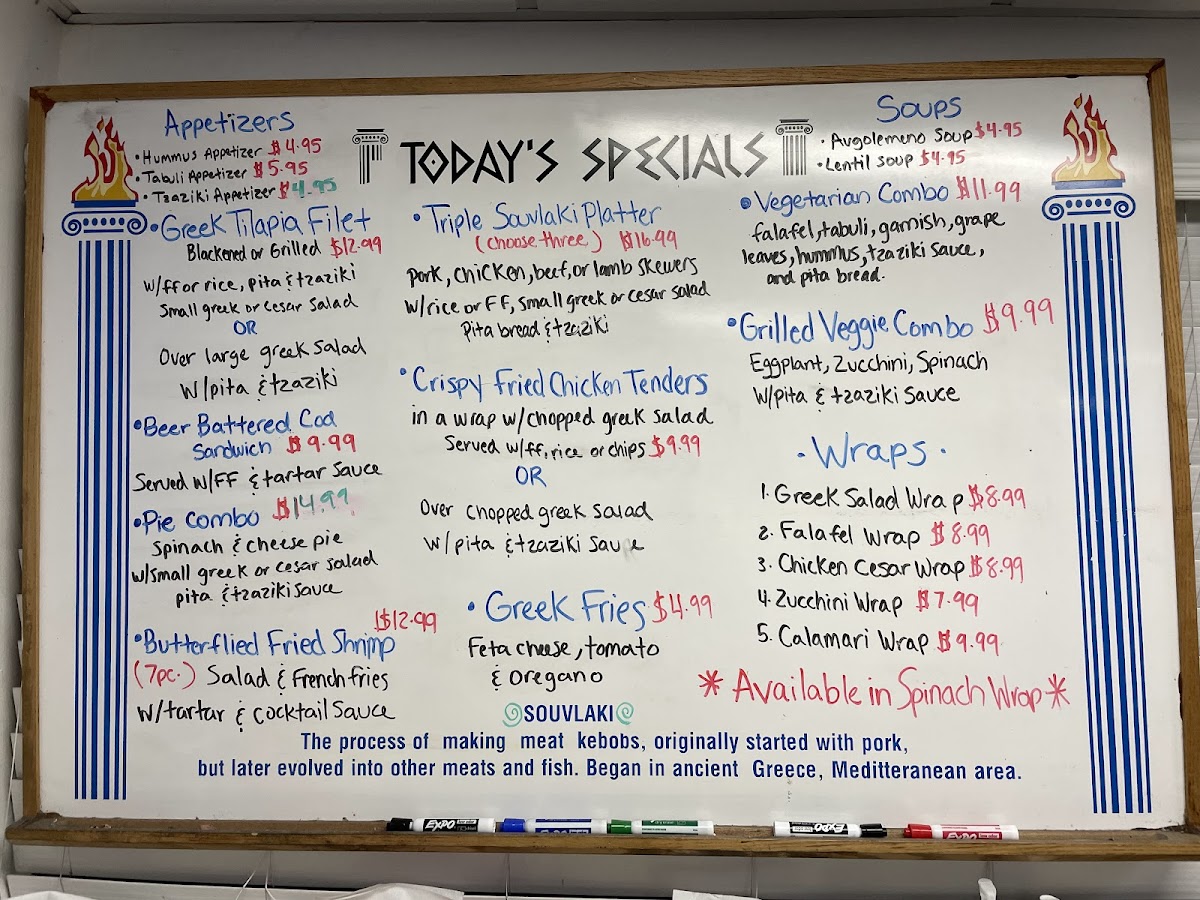 Appetizers
• Hummus Appetizer $4.95
• Tabuli Appetizer $5.95
• Tzaziki Appetizer $4.95
• Greek Tilapia Filet
Blackened or Grilled $12.99
w/ff or rice, pita & tzaziki
Small greek or cesar salad
OR
Over large greek salad
w/pita & tzaziki
• Beer Battered Cod
Sandwich $9.99
Served w/FF & tartar sauce
• Pie Combo $14.99
Spinach & cheese pie
w/small greek or cesar salad
pita & tzaziki sauce
$12.99
• Butterflied Fried Shrimp
(7pc.) Salad & French fries
w/tartar & cocktail sauce
TODAY'S SPECIALS
• Triple Souvlaki Platter
(choose three) $16.99
pork, chicken, beef, or lamb skewers
w/rice or FF, small greek or cesar salad
Pita bread & tzaziki
• Crispy Fried Chicken Tenders
in a wrap w/chopped greek salad
Served w/ff, rice or chips $9.99
OR
Over chopped greek salad
w/pita & tzaziki sauce
• Greek Fries $4.99
Feta cheese, tomato
& oregano
Soups
• Avgolemono Soup $4.95
• Lentil soup $4.95
• Vegetarian Combo $11.99
falafel, tabuli, garnish, grape
leaves, hummus, tzaziki sauce,
and pita bread.
• Grilled Veggie Combo $9.99
Eggplant, Zucchini, Spinach
w/pita & tzaziki sauce
• Wraps •
1. Greek Salad Wrap $8.99
2. Falafel Wrap $8.99
3. Chicken Cesar Wrap $8.99
4. Zucchini Wrap $7.99
5. Calamari Wrap $9.99
* Available in Spinach Wrap *
SOUVLAKI
The process of making meat kebobs, originally started with pork,
but later evolved into other meats and fish. Began in ancient Greece, Meditteranean area.
EXPO
EXPO
EXPO
EXPO